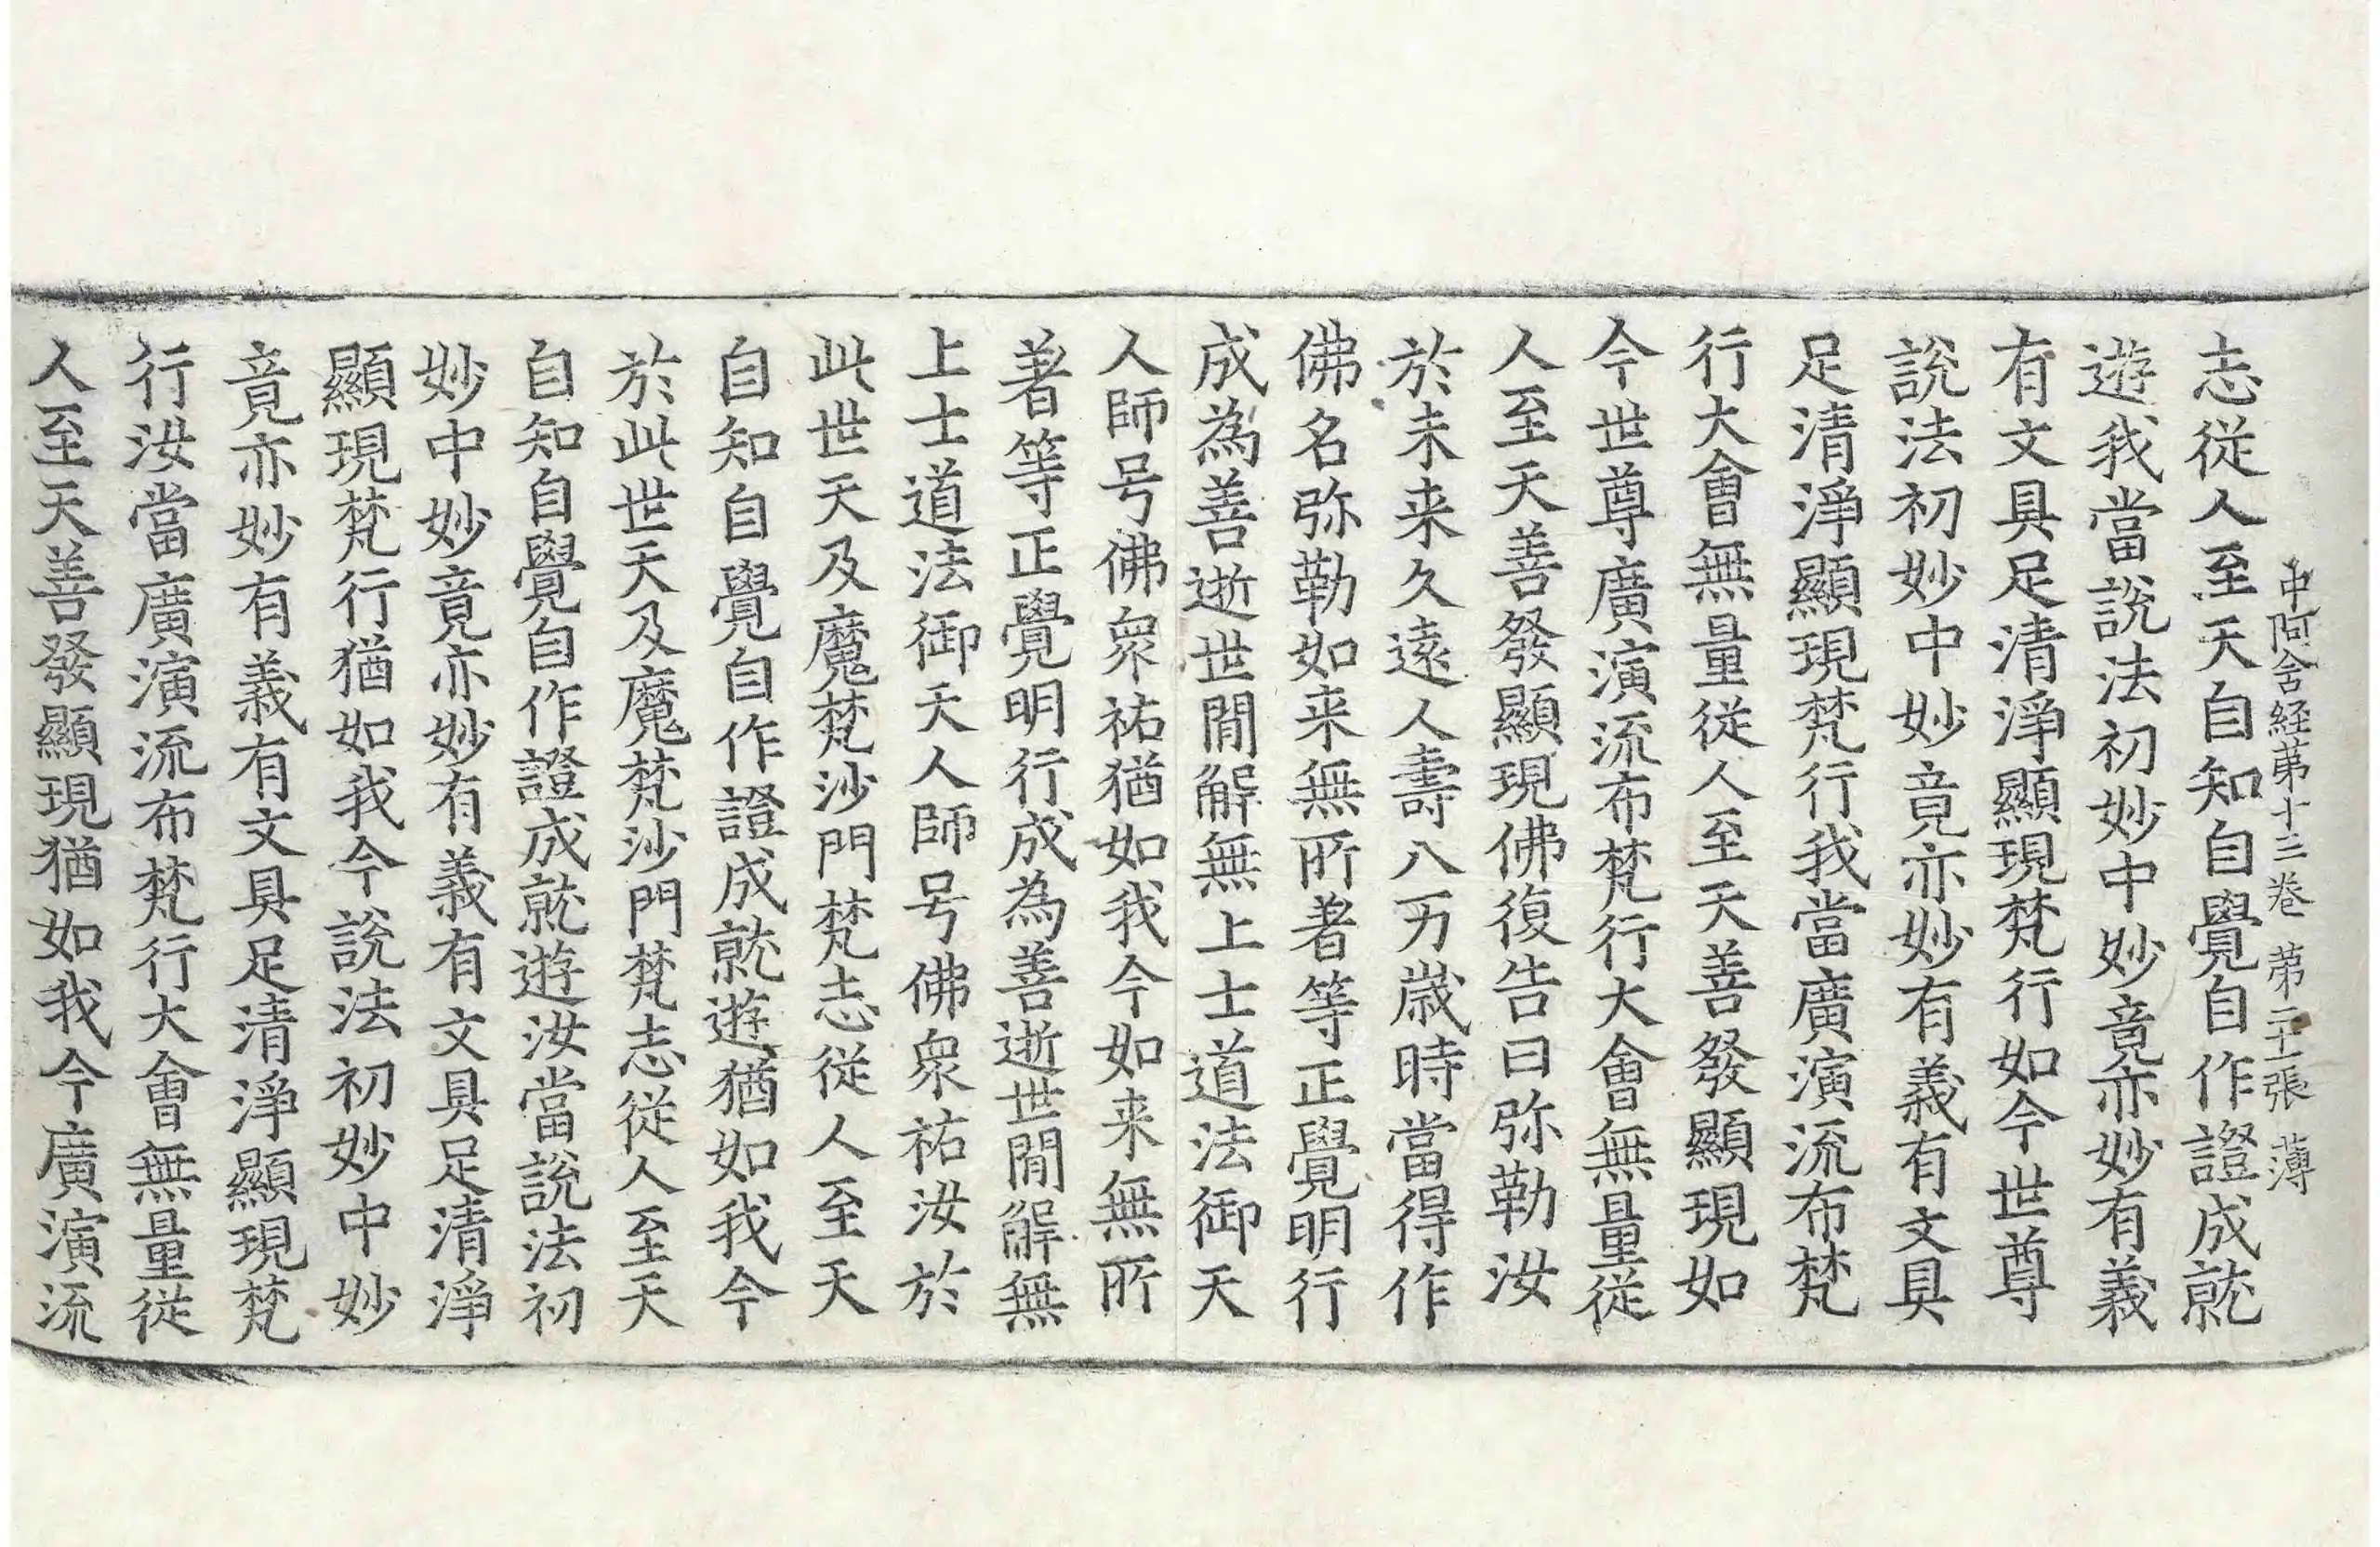 中阿含経苐十三卷 苐二十一張 薄
志從人至天自知自覺自作證成就
遊我當說法初妙中妙竟亦妙有義
有文具足清淨顯現梵行如今世尊
說法初妙中妙竟亦妙有義有文具
足清淨顯現梵行我當廣演流布梵
行大會無量從人至天善發顯現如
今世尊廣演流布梵行大會無量從
人至天善發顯現佛復告曰弥勒汝
於未来久遠人壽八万歲時當得作
佛名弥勒如来無所著等正覺明行
成為善逝世間解無上士道法御天
人師号佛衆祐猶如我今如来無所
著等正覺明行成為善逝世間解無
上士道法御天人師号佛衆祐汝於
此世天及魔梵沙門梵志從人至天
自知自覺自作證成就遊猶如我今
於此世天及魔梵沙門梵志從人至天
自知自覺自作證成就遊汝當說法初
妙中妙竟亦妙有義有文具足清淨
顯現梵行猶如我今說法初妙中妙
竟亦妙有義有文具足清淨顯現梵
行汝當廣演流布梵行大會無量從
人至天善發顯現猶如我今廣演流